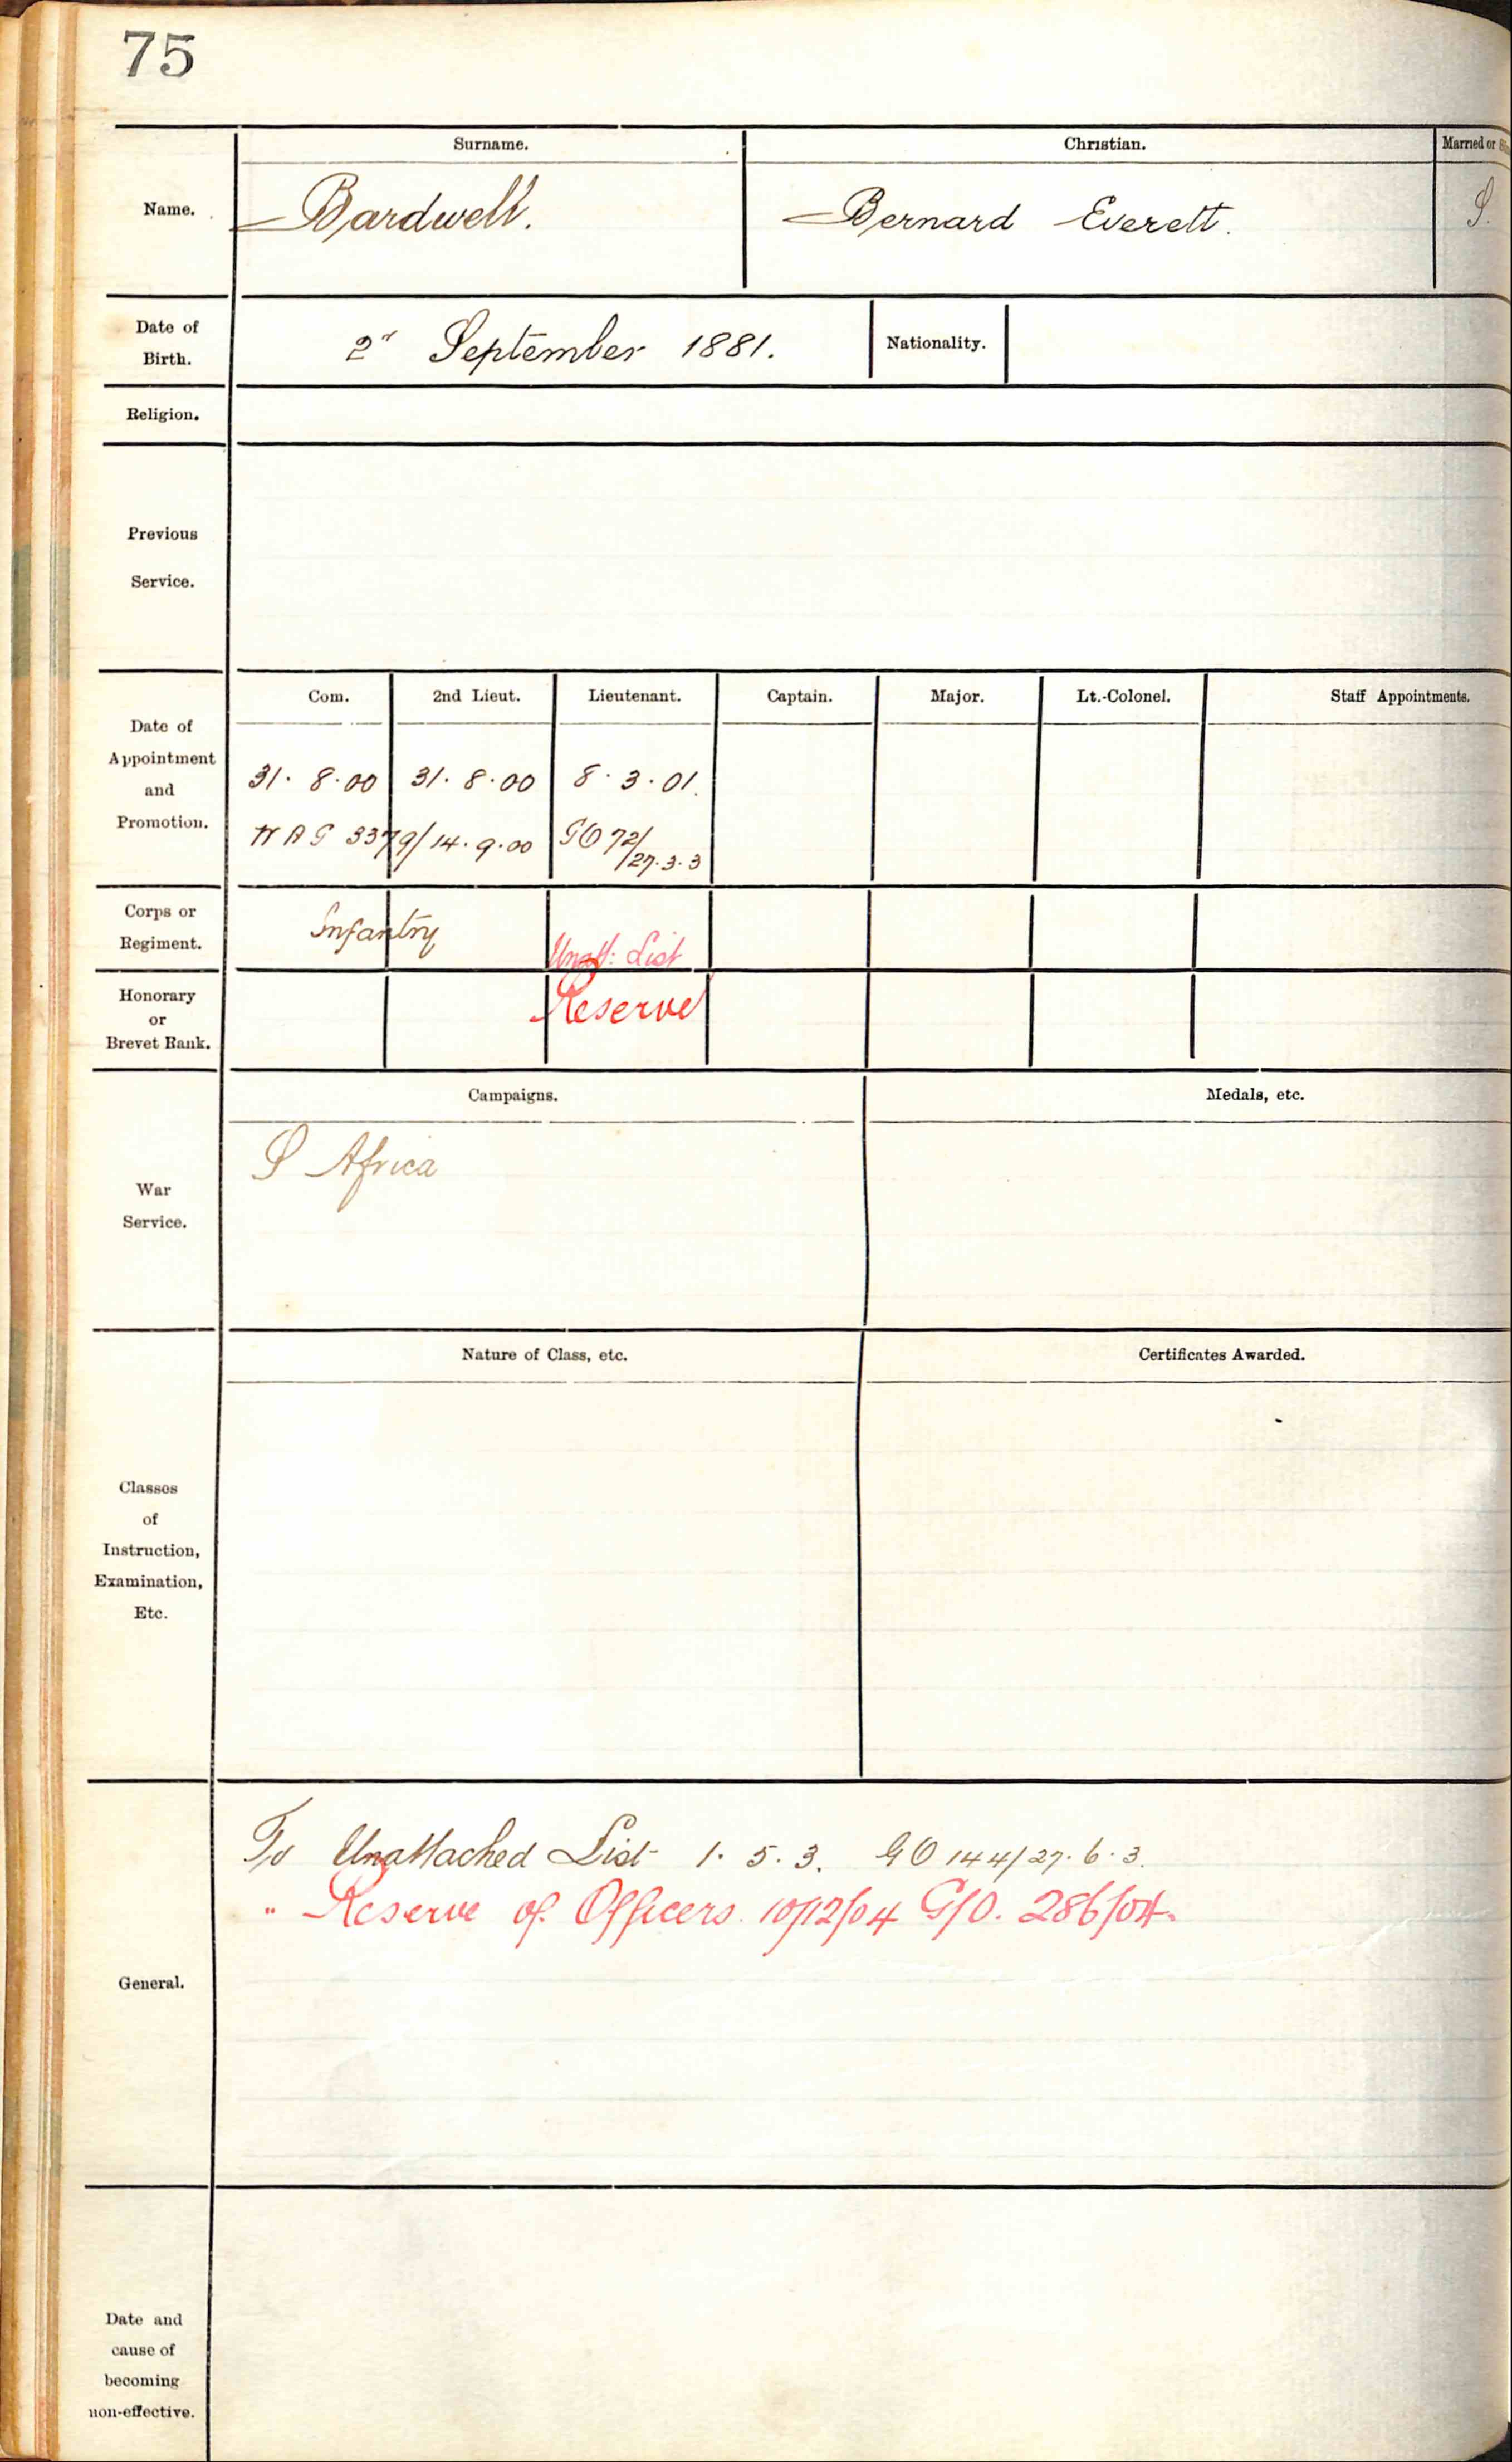 75
Surname. Christian. Married or
Name. Bardwell. Bernard Everett. S.
Date of Birth. 2d September 1881. Nationality.
Religion.
Previous Service.
Com. 2nd Lieut. Lieutenant. Captain. Major. Lt.-Colonel. Staff Appointments.
Date of Appointment and Promotion.
31. 8. 00 31. 8. 00 8. 3. 01.
WAG 3379/14. 9. 00 GO 72/27. 3. 3
Corps or Regiment. Infantry Unatt: List
Honorary or Brevet Rank. Reserve
Campaigns. Medals, etc.
War Service. S Africa
Nature of Class, etc. Certificates Awarded.
Classes of Instruction, Examination, Etc.
To Unattached List 1. 5. 3. GO 144/27. 6. 3.
" Reserve of Officers 10/12/04 G/O. 286/04.
General.
Date and cause of becoming non-effective.